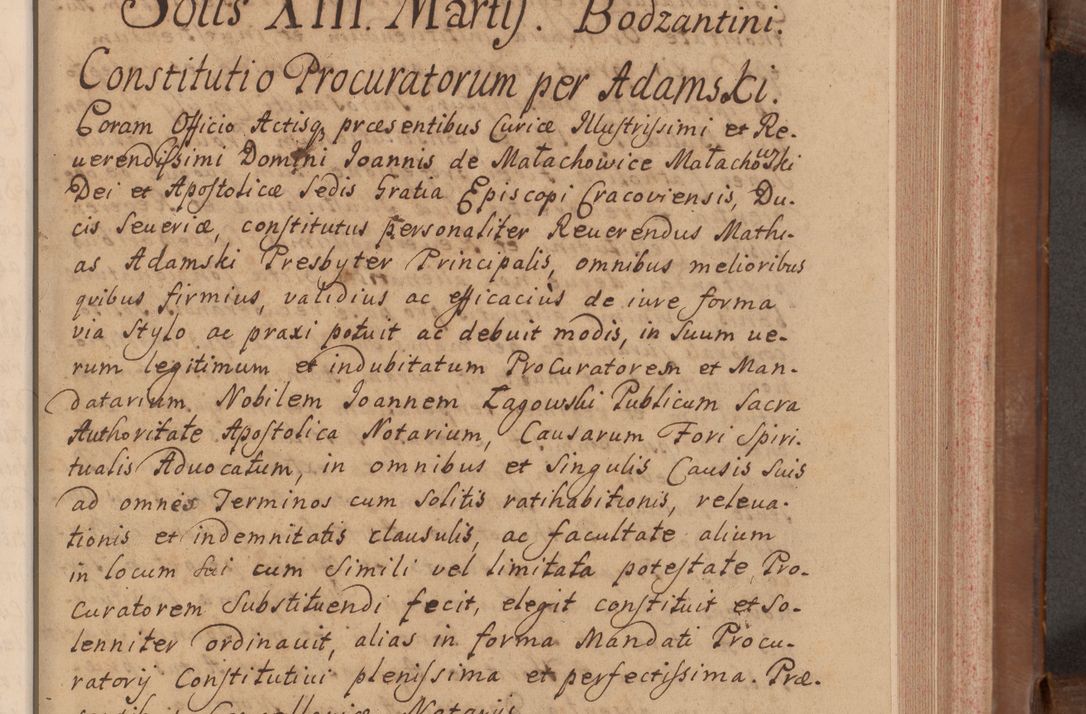 Solis XIII. Martij. Bodzantini.
Constitutio Procuratorum per Adamski.
Coram Officio Actisq; præsentibus Curiæ Illustrissimi et Re-
uerendissimi Domini Ioannis de Małachowice Małachowski
Dei et Apostolicæ Sedis Gratia Episcopi Cracoviensis, Du-
cis Seueriæ, constitutus personaliter Reuerendus Mathi-
as Adamski Presbyter Principalis, omnibus melioribus
quibus firmius, validius ac efficaciùs de iure forma
via stylo ac praxi potuit ac debuit modis, in suum ue-
rum legitimum et indubitatum Procuratorem et Man-
datarium Nobilem Ioannem Łagowski Publicum Sacra
Authoritate Apostolica Notarium, Causarum Fori Spiri-
tualis Aduocatum, in omnibus et singulis Causis suis
ad omnes Terminos cum solitis ratihabitionis, releua-
tionis et indemnitatis clausulis, ac facultate alium
in locum sui cum simili vel limitata potestate Pro-
curatorem substituendi fecit, elegit constituit et so-
lenniter ordinauit, alias in forma Mandati Procu-
ratorij Constitutiui plenissima et perfectissima. Præ-
sentibus Cancellariæ Notariis